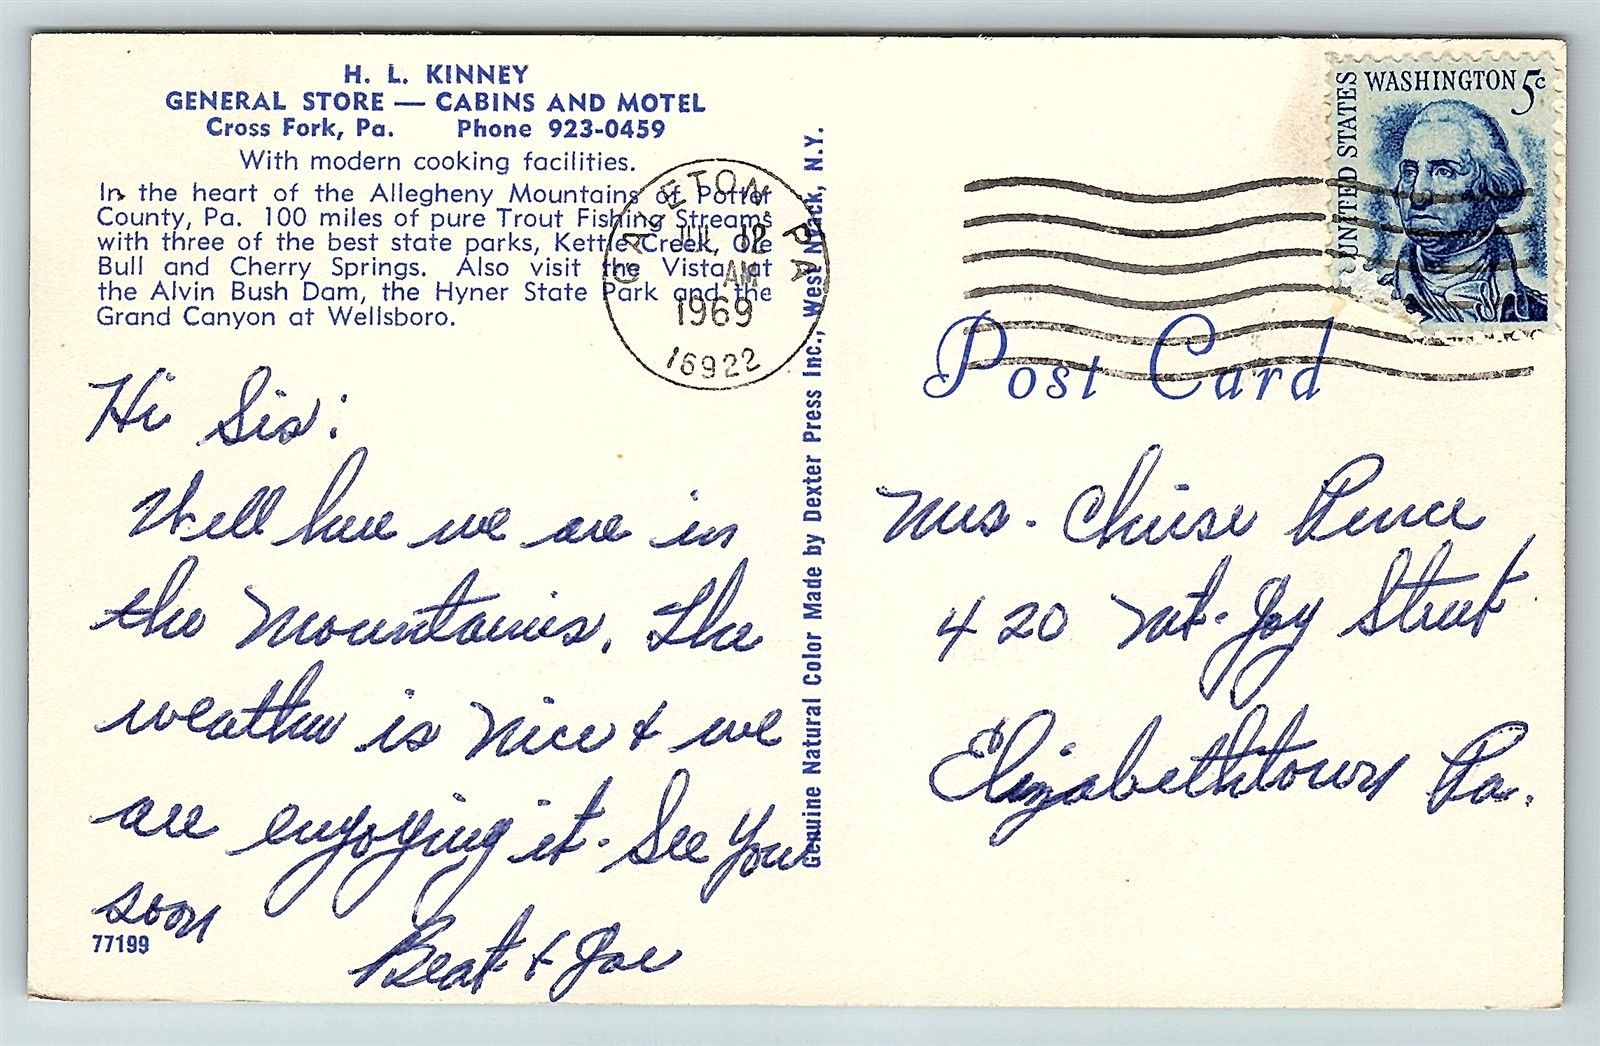 H. L. KINNEY
GENERAL STORE — CABINS AND MOTEL
Cross Fork, Pa. Phone 923-0459
With modern cooking facilities.
In the heart of the Allegheny Mountains of Potter
County, Pa. 100 miles of pure Trout Fishing Streams
with three of the best state parks, Kettle Creek, Ole
Bull and Cherry Springs. Also visit the Vista at
the Alvin Bush Dam, the Hyner State Park and the
Grand Canyon at Wellsboro.
Hi Sis:
Well here we are in
the Mountains. The
weather is nice & we
are enjoying it. See You
soon
Beat & Joe
77199
Genuine Natural Color Made by Dexter Press Inc., West Nyack, N.Y.
GALETON PA
JUL 12
AM
1969
16922
UNITED STATES
WASHINGTON 5c
Post Card
Mrs.
420 Mt. Joy Street
Elizabethtown Pa.